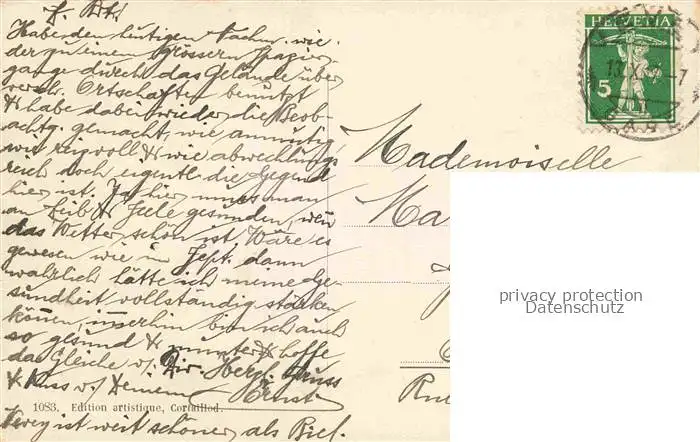 Haben den heutigen Nachm. wie
der zu einem grössern Spazier
gange durch das Gelände über
versch. Ortschaften benutzt
& habe dabei wieder die Beob-
achtg. gemacht, wie anmutig
wie reizvoll & wie abwechlungs
reich doch eigentl. die Gegend
hier ist. Ja hier muss man
an Leib & Seele gesunden, wen
das Wetter schön ist. Wäre es
gewesen wie im Sept. dann
wahrlich hätte ich meine Ge-
sundheit vollständig stärken
können, immerhin bin ich auch
so gesund & munter & hoffe
das Gleiche v. Dir. Herzl. Gruss
& Kuss v. Deinem Ernst
1083. Edition artistique, Cortaillod.
Vevey ist weit schöner als Biel.
HELVETIA
5
Mademoiselle
Ma
Rue
privacy protection
Datenschutz